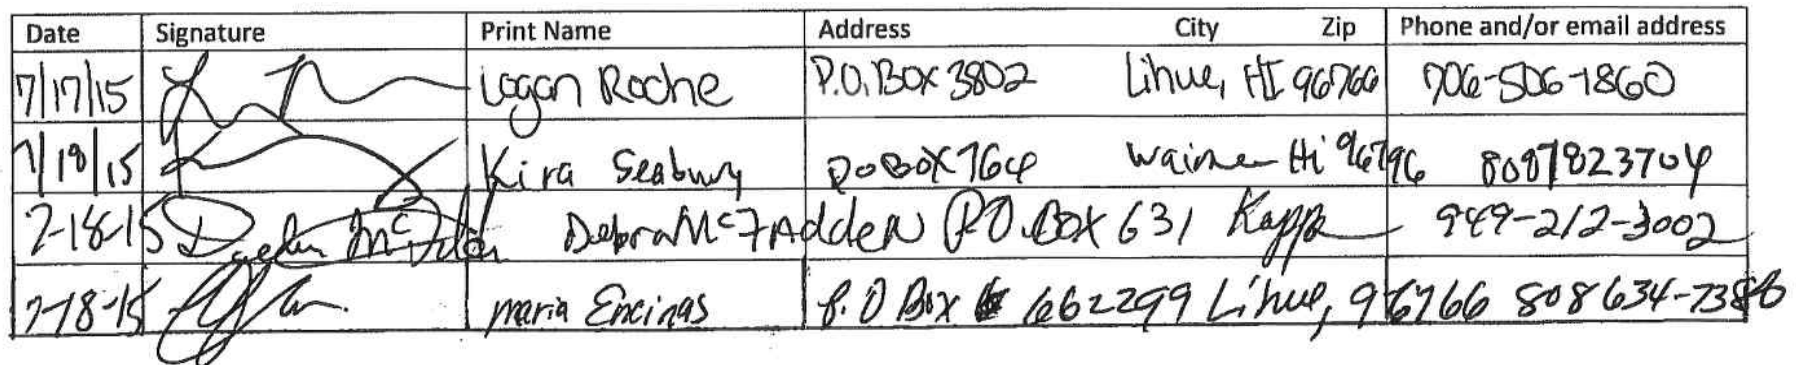 Date Signature Print Name Address City Zip Phone and/or email address
7/17/15 Logan Roche P.O. Box 3802 Lihue, HI 96766 706-506-1860
7/18/15 Kira Seabury PO BOX 764 Waimea Hi 96796 8087823704
7-18-15 Debra McFAddeN P.O. BOX 631 Kapaa 949-212-3002
7-18-15 maria Encinas P.O Box 662299 Lihue, 96766 808 634-7386